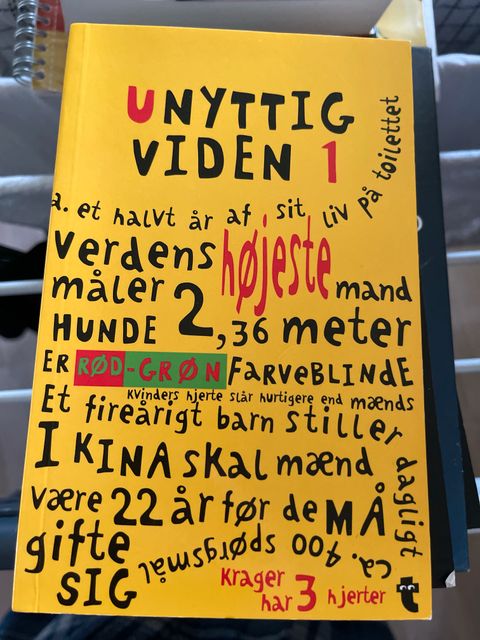 UNYTTIG
VIDEN 1
a. et halvt år af sit liv på toilettet
verdens højeste
måler 2,36 meter mand
HUNDE
ER RØD-GRØN FARVEBLINDE
Kvinders hjerte slår hurtigere end mænds
Et fireårigt barn stiller dagligt
ca. 400 spørgsmål
I KINA SKAL mænd
være 22 år før de MÅ
gifte
SIG
Krager
har 3 hjerter